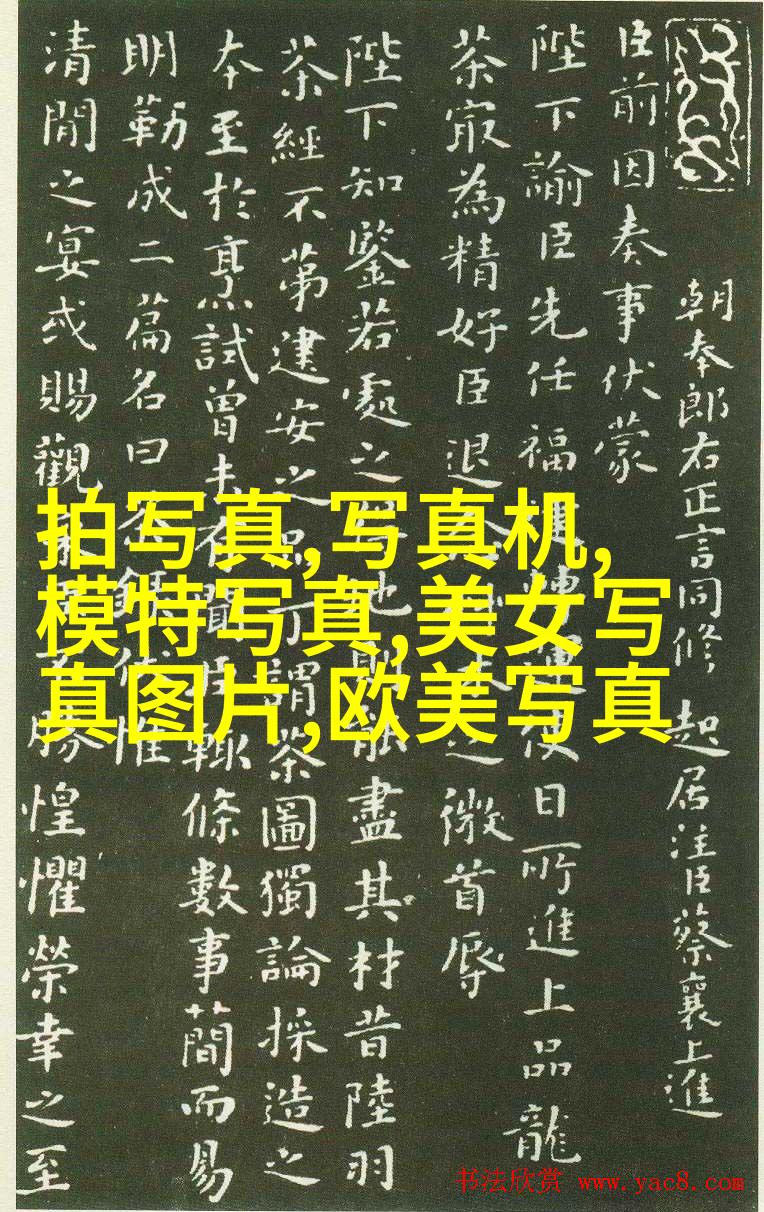 朝奉郎右正言同修起居注臣蔡襄上進
臣前因奏事伏蒙
陛下諭臣先任福建轉運使日所進上品龍
茶㝡為精好臣退 之微首辱
陛下知鑒若處之得地則能盡其材昔陸羽
茶經不第建安之品丁謂茶圖獨論採造之
本至於烹試曾未有聞臣輒條數事簡而易
明勒成二篇名曰茶錄伏惟
清閒之宴或賜觀 勝惶懼榮幸之至
拍写真,写真机,
模特写真,美女写
真图片,欧美写真
书法欣赏 www.yac8.com